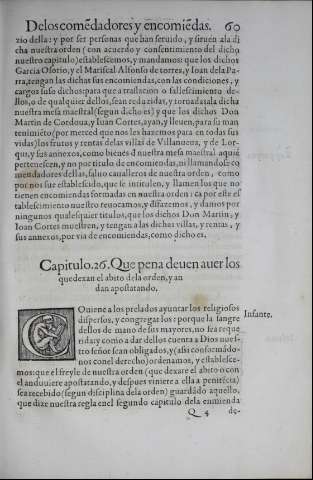 Delos comẽdadores y encomiẽdas. 60
zio della: y por ser personas que han seruido, y siruen ala di
cha nuestra orden (con acuerdo y consentimiento del dicho
nuestro capitulo) establescemos, y mandamos: que los dichos
Garcia Osorio, y el Mariscal Alfonso de torres, y Ioan dela Pa-
rra, tengan las dichas sus encomiendas, con las condiciones, y
cargos suso dichos: para que a traslacion o fallescimiento de-
llos, o de qualquier dellos, sean reduzidas, y tornadas ala dicha
nuestra mesa maestral (segun dicho es) y que los dichos Don
Martin de Cordoua, y Iuan Cortes, ayan, y lleuen, para su man
tenimiẽto (por merced que nos les hazemos para en todas sus
vidas) los frutos y rentas delas villas de Villanueua, y de Lor-
qui, y sus annexos, como bienes d nuestra mesa maestral aquiẽ
pertenescen, y no por titulo de encomiendas, ni llamandose co
mendadores dellas, saluo caualleros de nuestra orden, como
por nos fue establescido, que se intitulen, y llamen los que no
tienen encomiendas formadas en nuestra orden: ca por este es
tablescimiento nuestro reuocamos, y dissazemos, y damos por
ningunos qualesquier titulos, que los dichos Don Martin, y
Ioan Cortes muestren, y tengan a las dichas villas, y rentas, y
sus annexos, por via de encomiendas, como dicho es.
Capitulo. 26. Que pena deuen auer los
que dexan el abito dela orden, y an
dan apostatando.
COniene a los prelados ayuntar los religiosos
dispersos, y congregar los: porque la sangre
dellos de mano de sus mayores, no sea reque
rida: y como a dar dellos cuenta a Dios nues-
tro señor sean obligados, y (assi conformãdo-
nos con el derecho) ordenamos, y establesce-
mos: que el freyle de nuestra orden (que dexare el abito o con
el anduuiere apostatando, y despues viniere a ella a penitẽcia)
sea recebido (segun disciplina dela orden) guardãdo aquello,
que dize nuestra regla enel segundo capitulo dela enmienda
Infante.
Q 4 de-